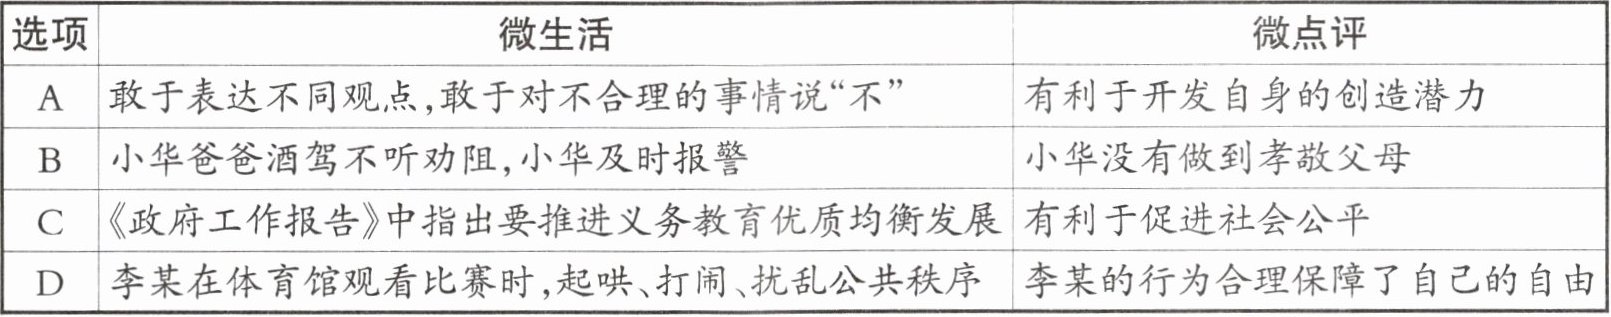 选项 微生活 微点评
A 敢于表达不同观点,敢于对不合理的事情说“不” 有利于开发自身的创造潜力
B 小华爸爸酒驾不听劝阻,小华及时报警 小华没有做到孝敬父母
C 《政府工作报告》中指出要推进义务教育优质均衡发展 有利于促进社会公平
D 李某在体育馆观看比赛时,起哄、打闹、扰乱公共秩序 李某的行为合理保障了自己的自由